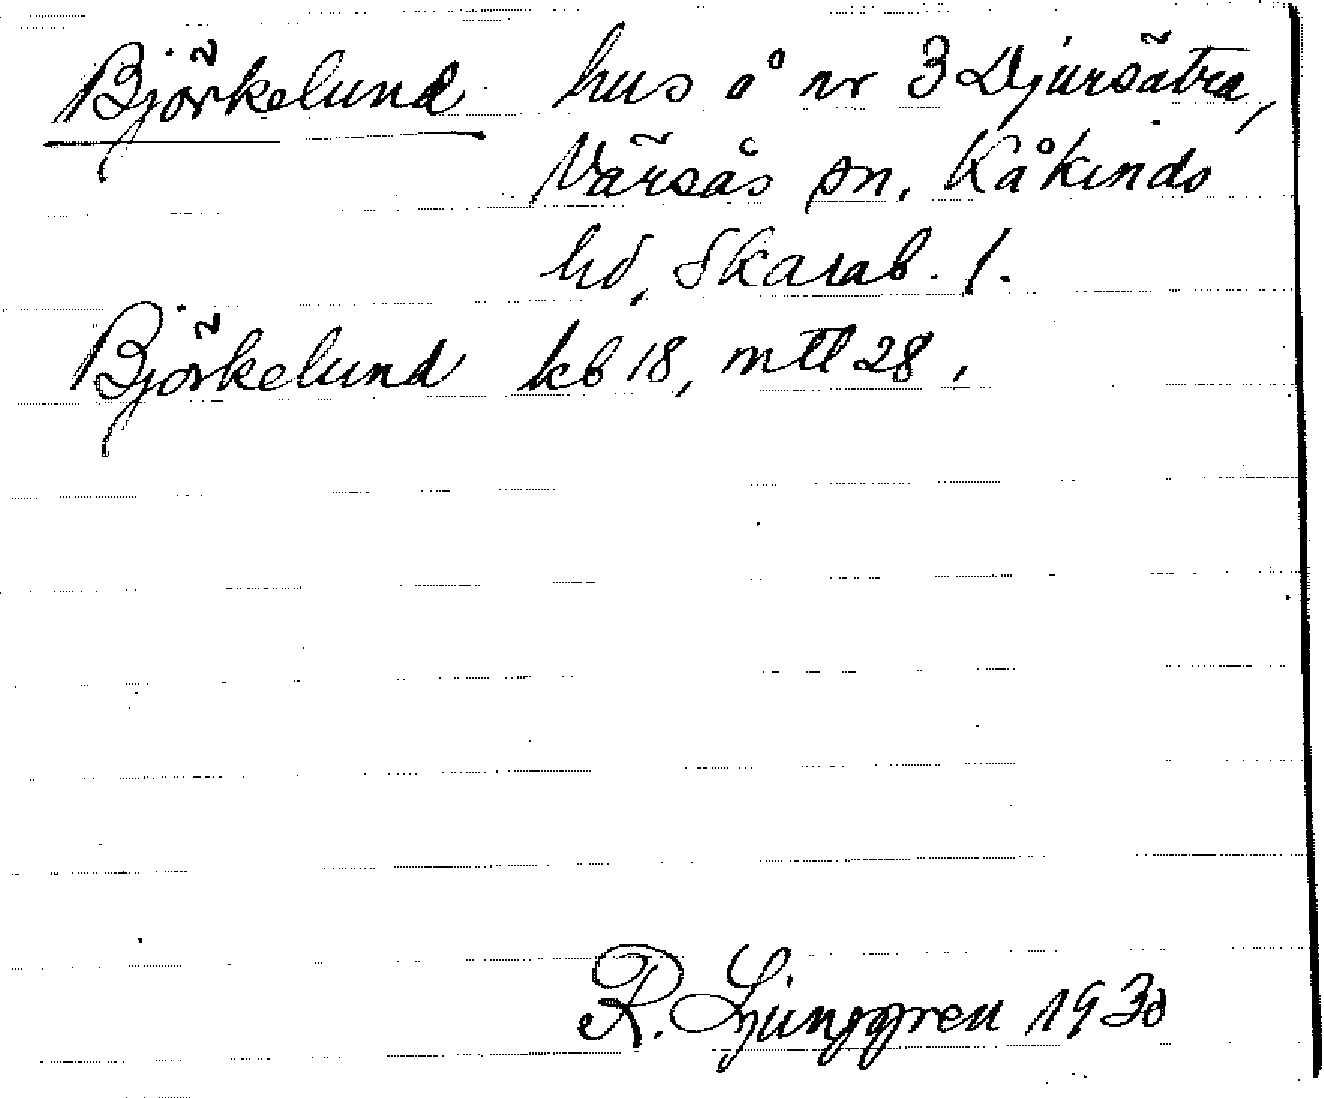 Björkelund hus å nr 3 Djursätra,
Värsås sn, Kåkinds
hd, Skarab. l.
Björkelund kb 18, mtl 28,
R. Ljunggren 1930